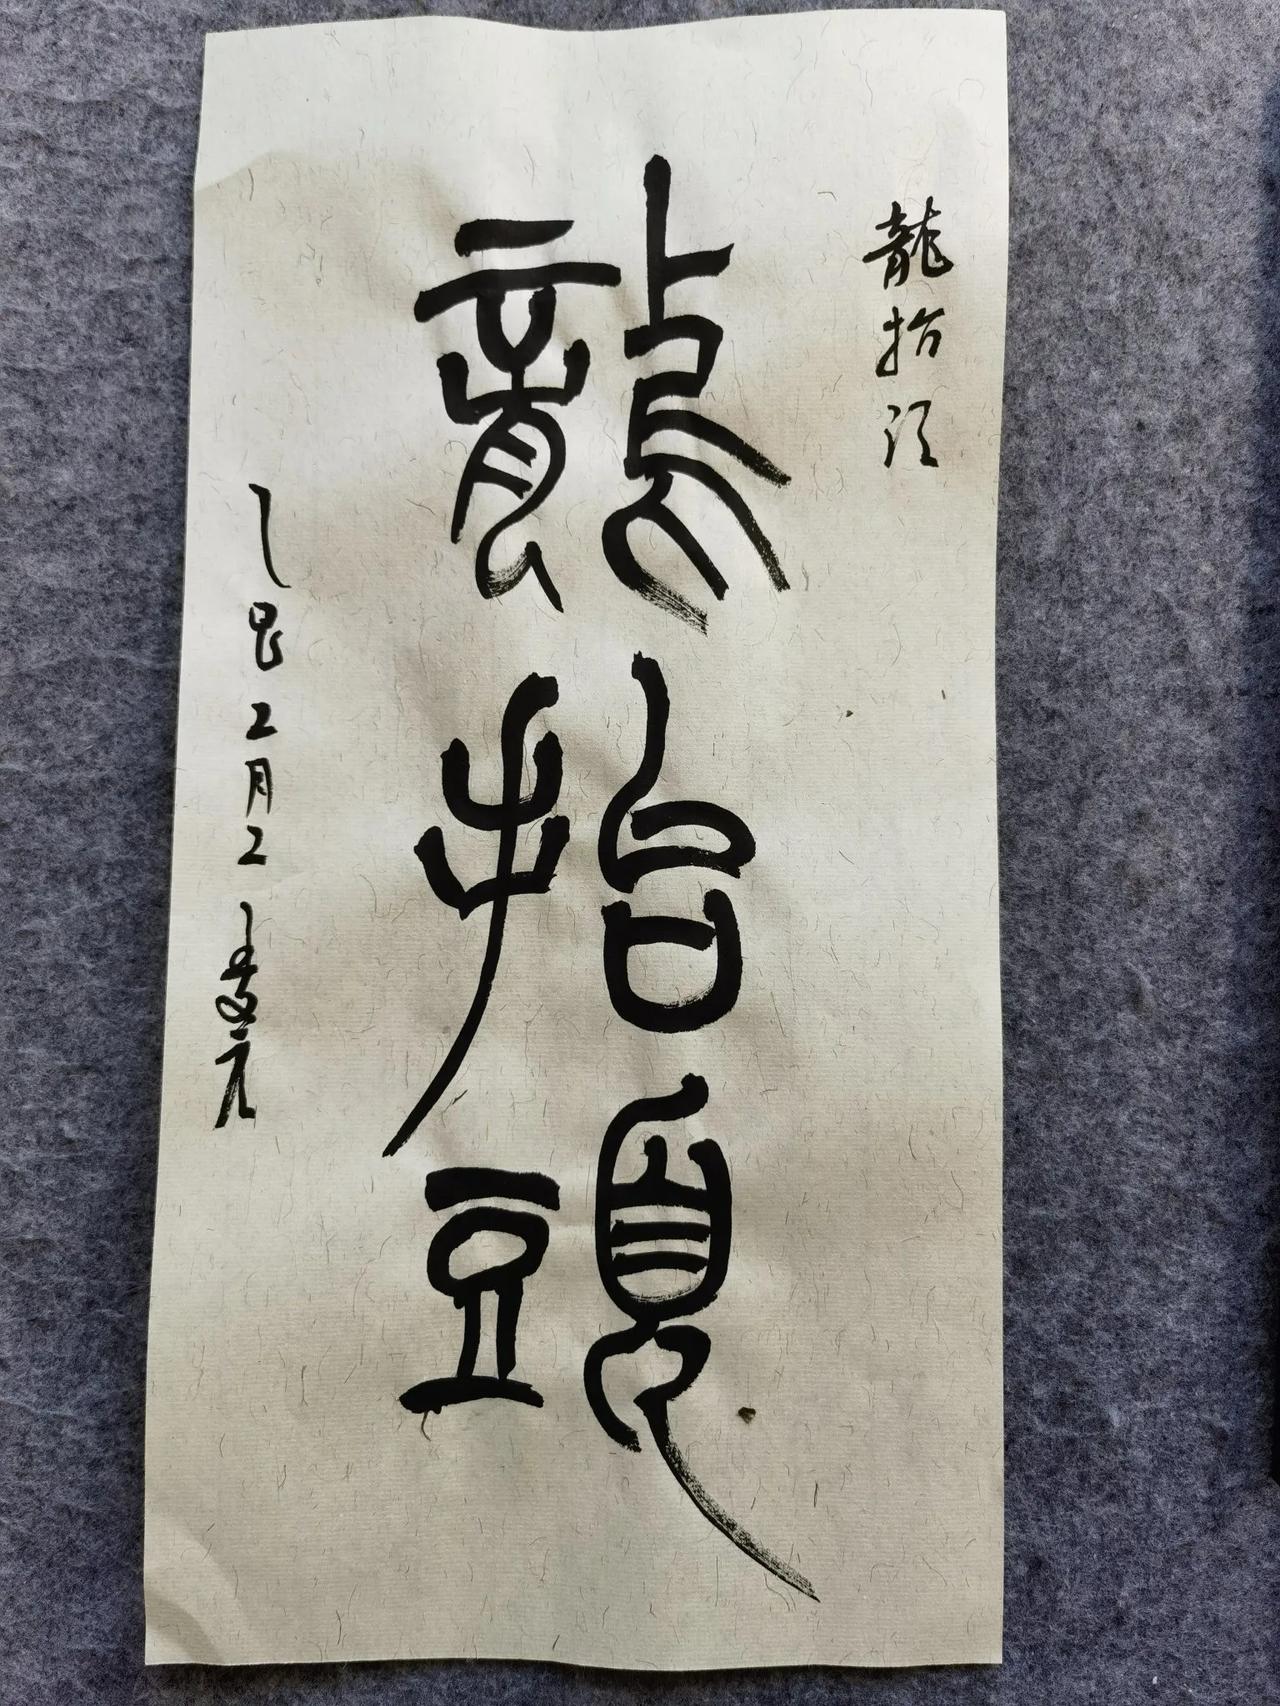 龍抬頭
龍抬頭
乙巳二月二